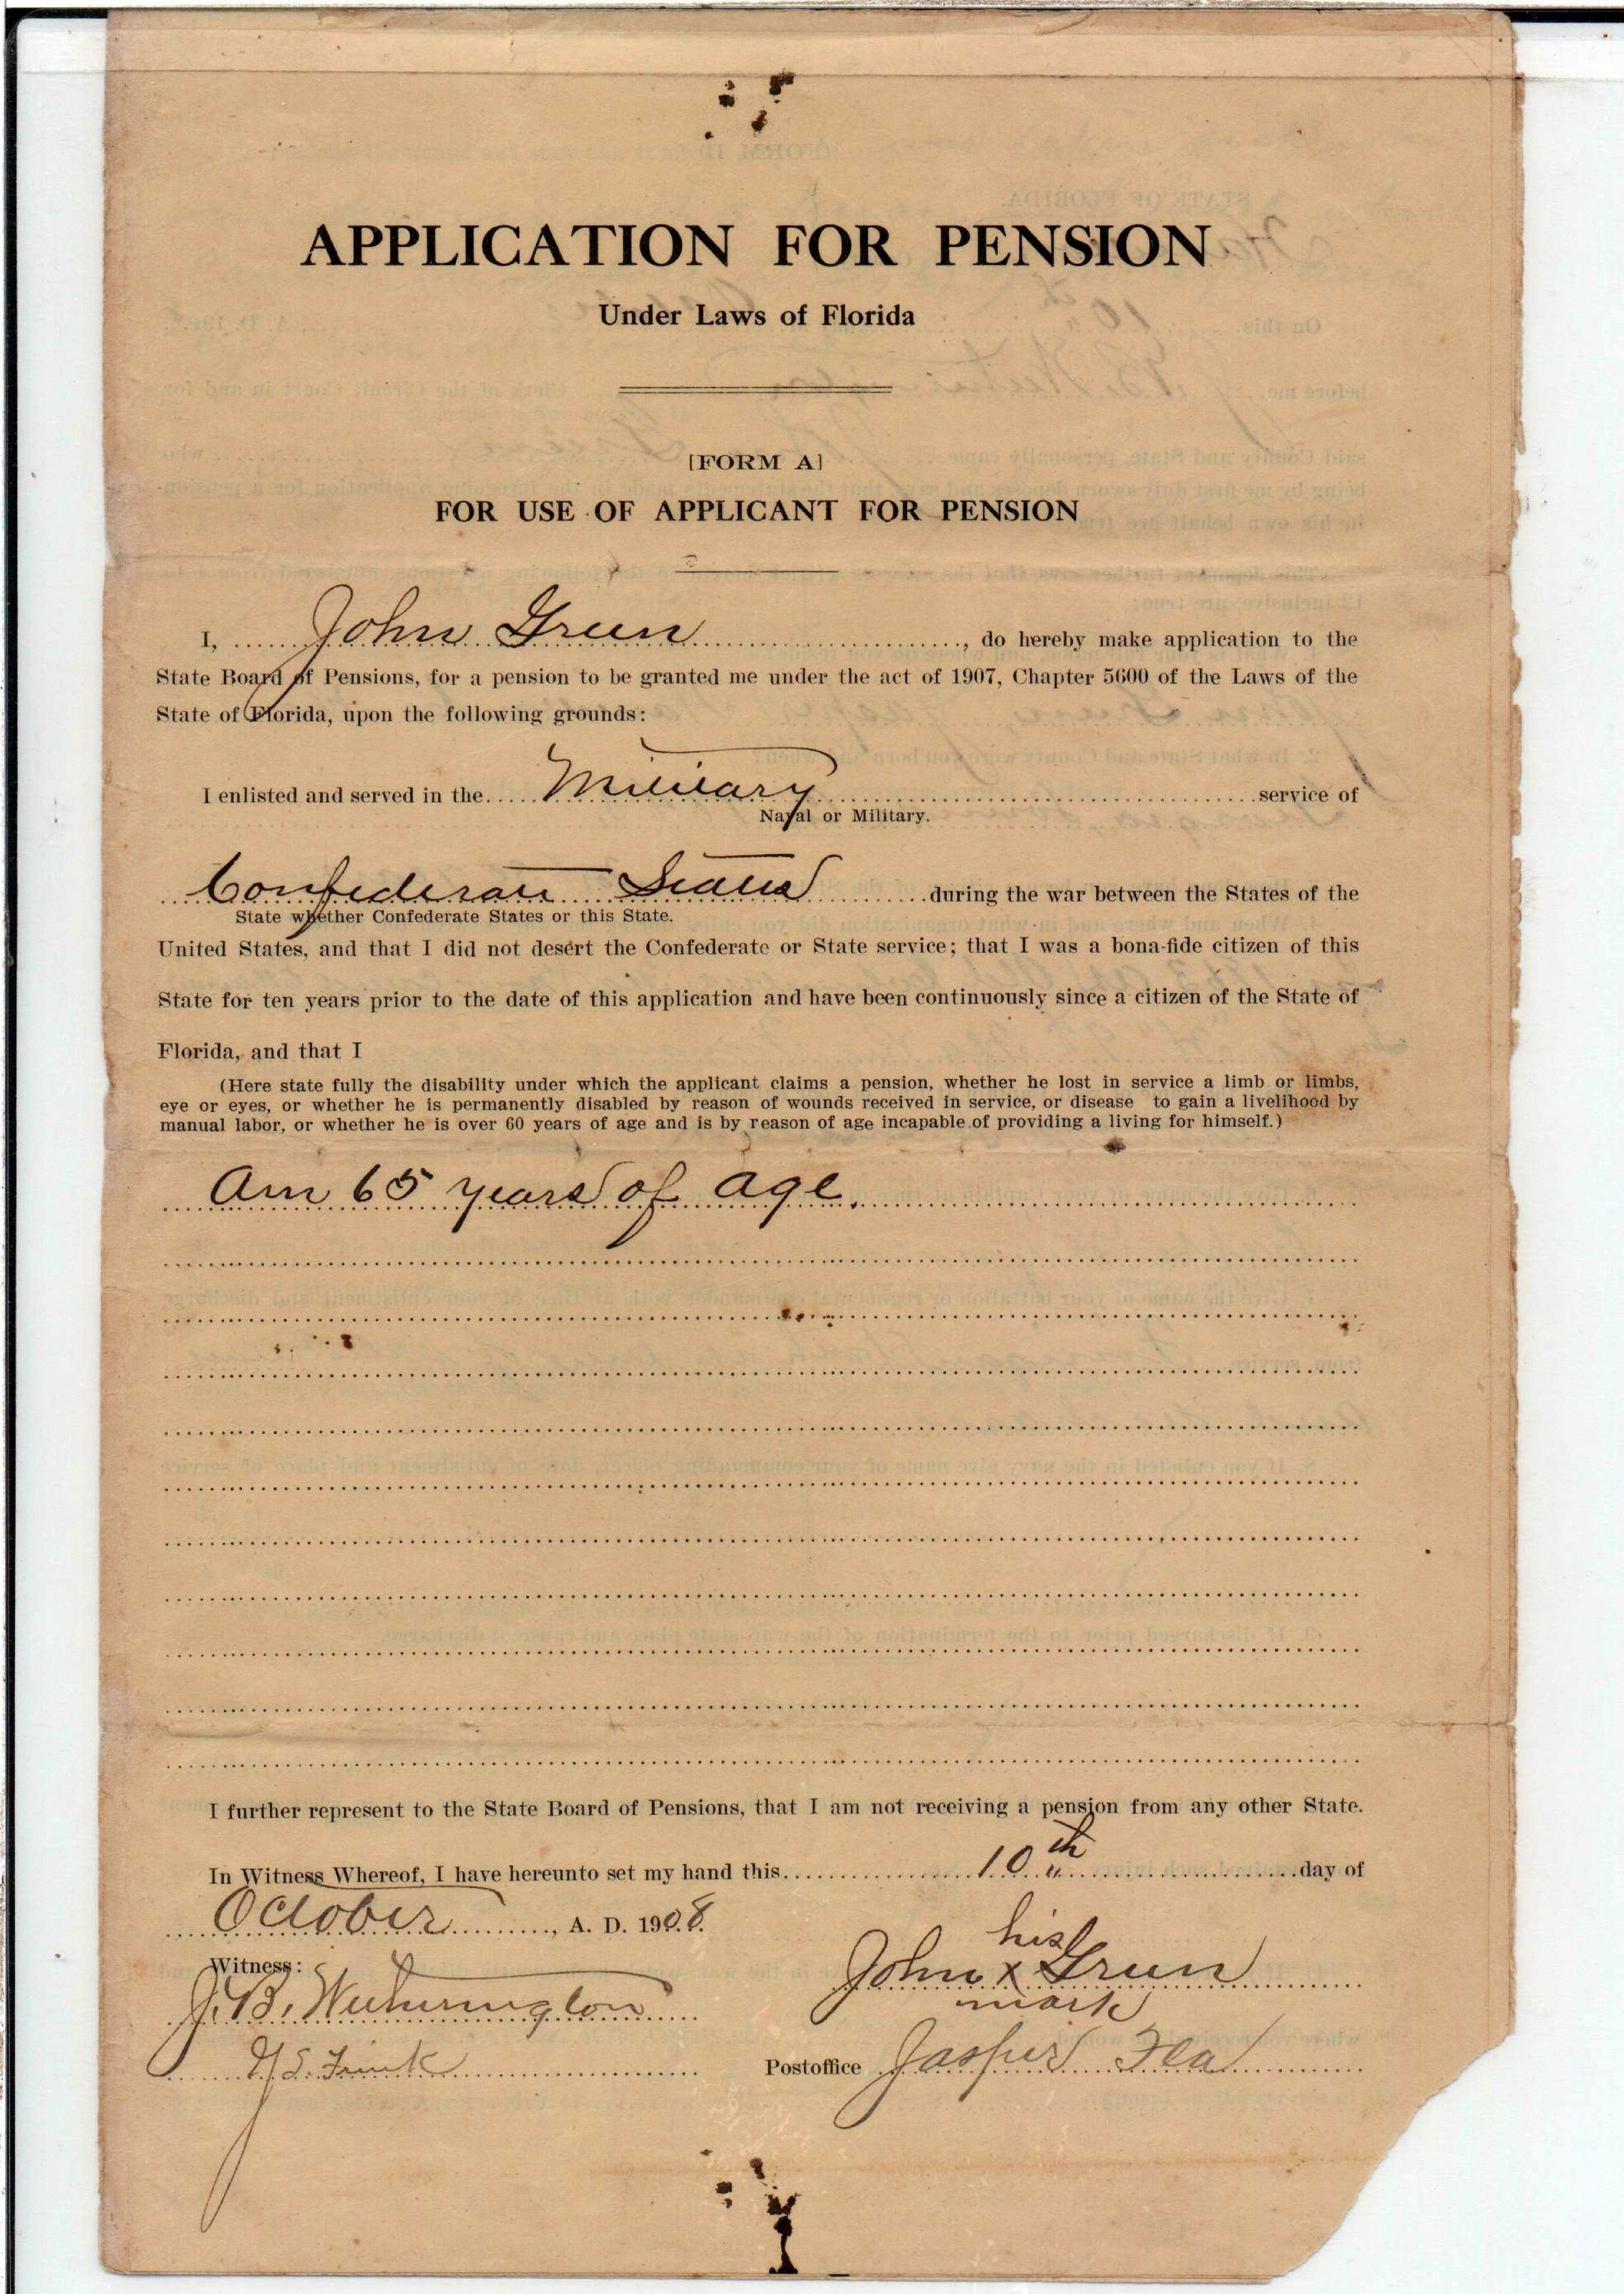 APPLICATION FOR PENSION
Under Laws of Florida
[FORM A]
FOR USE OF APPLICANT FOR PENSION
I, John Green, do hereby make application to the
State Board of Pensions, for a pension to be granted me under the act of 1907, Chapter 5600 of the Laws of the
State of Florida, upon the following grounds:
I enlisted and served in the Military service of
Naval or Military.
Confederate States during the war between the States of the
State whether Confederate States or this State.
United States, and that I did not desert the Confederate or State service; that I was a bona-fide citizen of this
State for ten years prior to the date of this application and have been continuously since a citizen of the State of
Florida, and that I
(Here state fully the disability under which the applicant claims a pension, whether he lost in service a limb or limbs,
eye or eyes, or whether he is permanently disabled by reason of wounds received in service, or disease to gain a livelihood by
manual labor, or whether he is over 60 years of age and is by reason of age incapable of providing a living for himself.)
Am 65 years of age.
I further represent to the State Board of Pensions, that I am not receiving a pension from any other State.
In Witness Whereof, I have hereunto set my hand this 10th day of
October, A. D. 1908.
Witness:
his
John x Green
mark
J. B. Witherington
Postoffice Jasper Fla